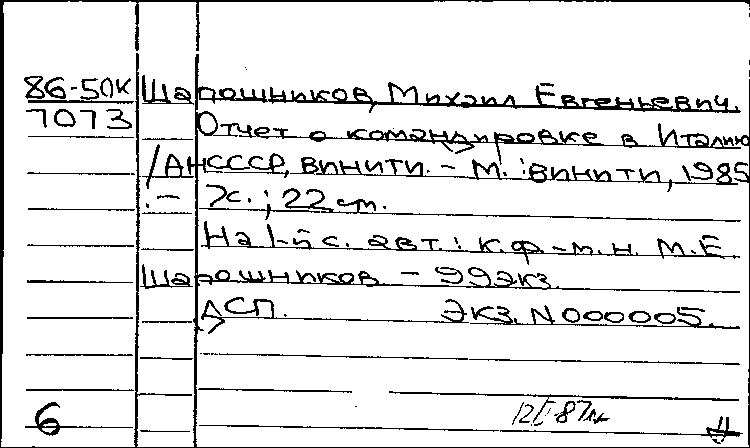 86-50К Шапошников, Михаил Евгеньевич.
7073 Отчет о командировке в Италию
/АНСССР, ВИНИТИ. – М. : ВИНИТИ, 1985
. – 7с. ; 22 см.
На 1-й с. авт. : к.ф.-м.н. М.Е.
Шапошников – 99экз.
ДСП. Экз. N000005.
6